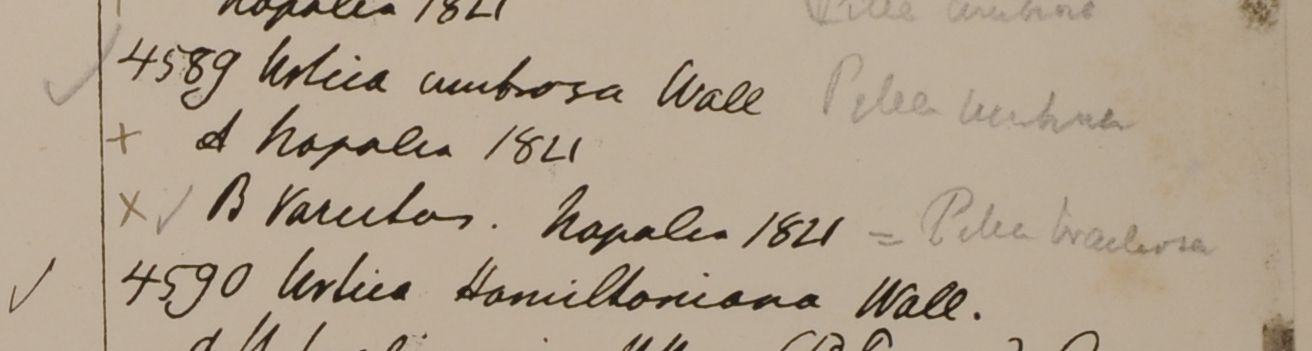 Napalia 1821 Pilea umbrosa
4589 Urtica umbrosa Wall Pilea umbrosa
A Napalia 1821
B Varietas. Napalia 1821 = Pilea bracteosa
4590 Urtica Hamiltoniana Wall.